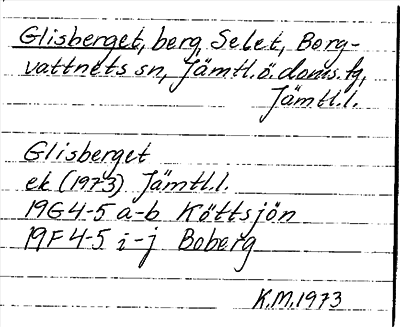 Glisberget, berg, Selet, Borg-
vattnets sn, Jämtl.ö.doms.fg,
Jämtl.l.
Glisberget
ek (1973) Jämtl.l.
19G4-5 a-b Köttsjön
19F4-5 i-j Boberg
K.M.1973